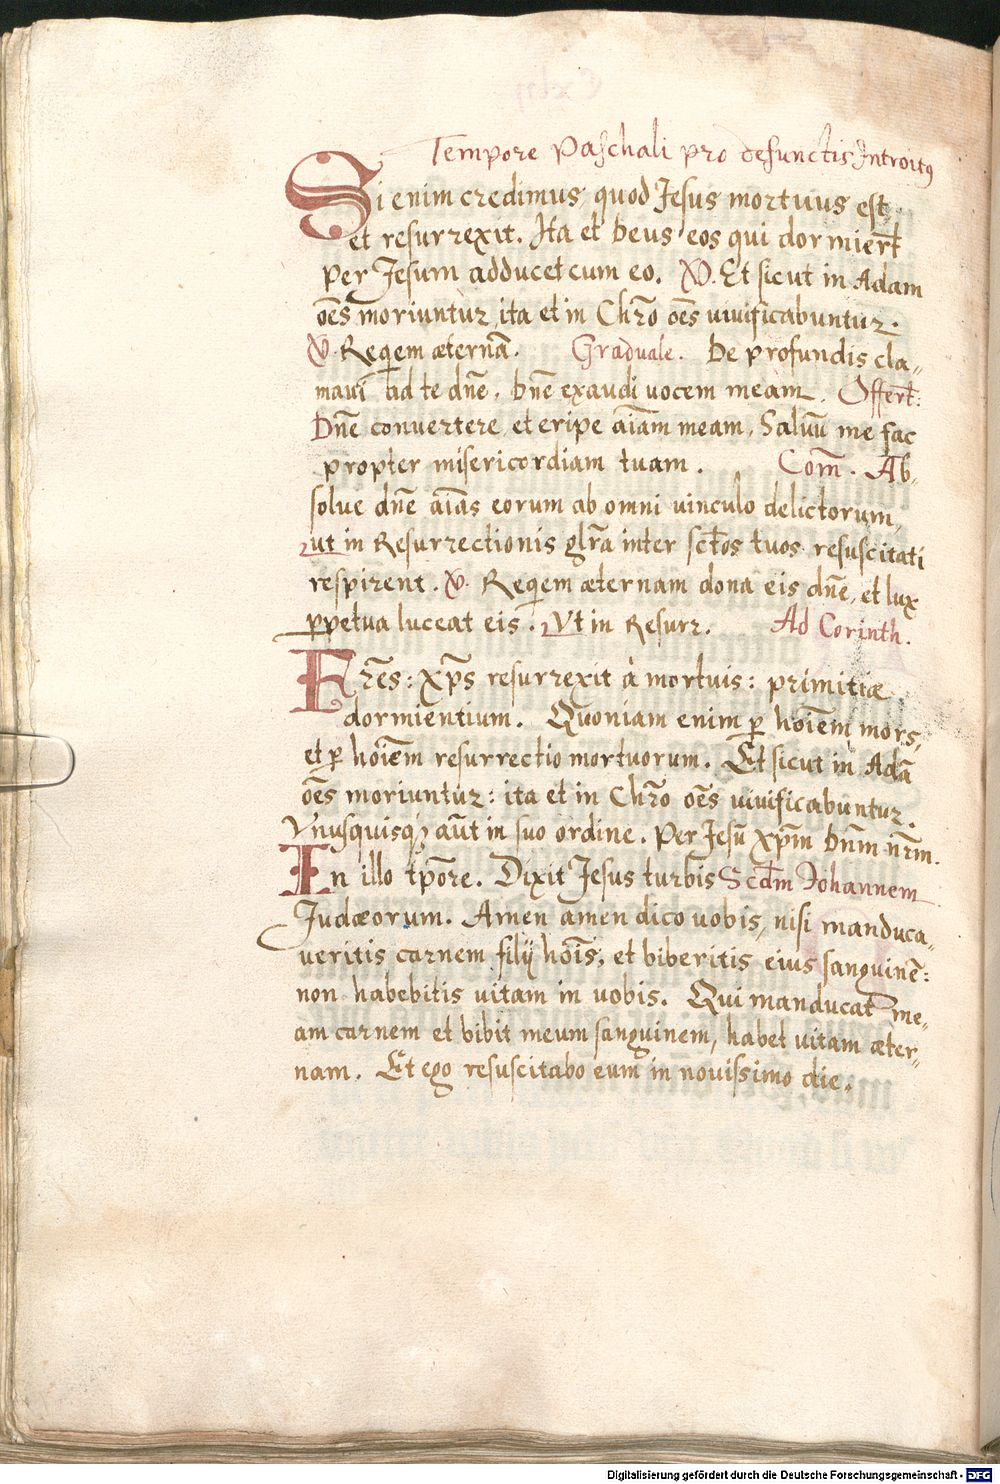 Tempore Paschali pro defunctis Introitꝰ
Si enim credimus quod Jesus mortuus est
et resurrexit. Ita et Deus eos qui dormiert̄
per Jesum adducet cum eo. V. Et sicut in Adam
oēs moriuntur ita et in Chrō oēs uiuificabuntur.
V. Reqiem æternā. Graduale. De profundis cla„
maui ad te dnē. Dnē exaudi uocem meam. Offert:
Dnē conuertere, et eripe aīam meam. Saluū me fac
propter misericordiam tuam. Com̄. Ab„
solue dnē aīas eorum ab omni uinculo delictorum,
ut in Resurrectionis glrā inter sctōs tuos resuscitati
respirent. V. Reqiem æternam dona eis dnē, et lux
ꝑpetua luceat eis. Vt in Resurr. Ad Corinth.
Frēs: Xp̄s resurrexit à mortuis: primitiæ
dormientium. Quoniam enim ꝑ hoīem mors,
et ꝑ hoīem resurrectio mortuorum. Et sicut in Adā
oēs moriuntur: ita et in Chrō oēs uiuificabuntur.
Vnusquisqꝫ aūt in suo ordine. Per Jesū Xp̄m Dnm̄ nrm̄.
In illo tp̄ore. Dixit Jesus turbis Scdm̄ Johannem
Judæorum. Amen amen dico uobis, nisi manduca„
ueritis carnem filij hoīs, et biberitis eius sanguinē:
non habebitis uitam in uobis. Qui manducat me„
am carnem et bibit meum sanguinem, habet uitam æter„
nam. Et ego resuscitabo eum in nouissimo die.
Digitalisierung gefördert durch die Deutsche Forschungsgemeinschaft - DFG